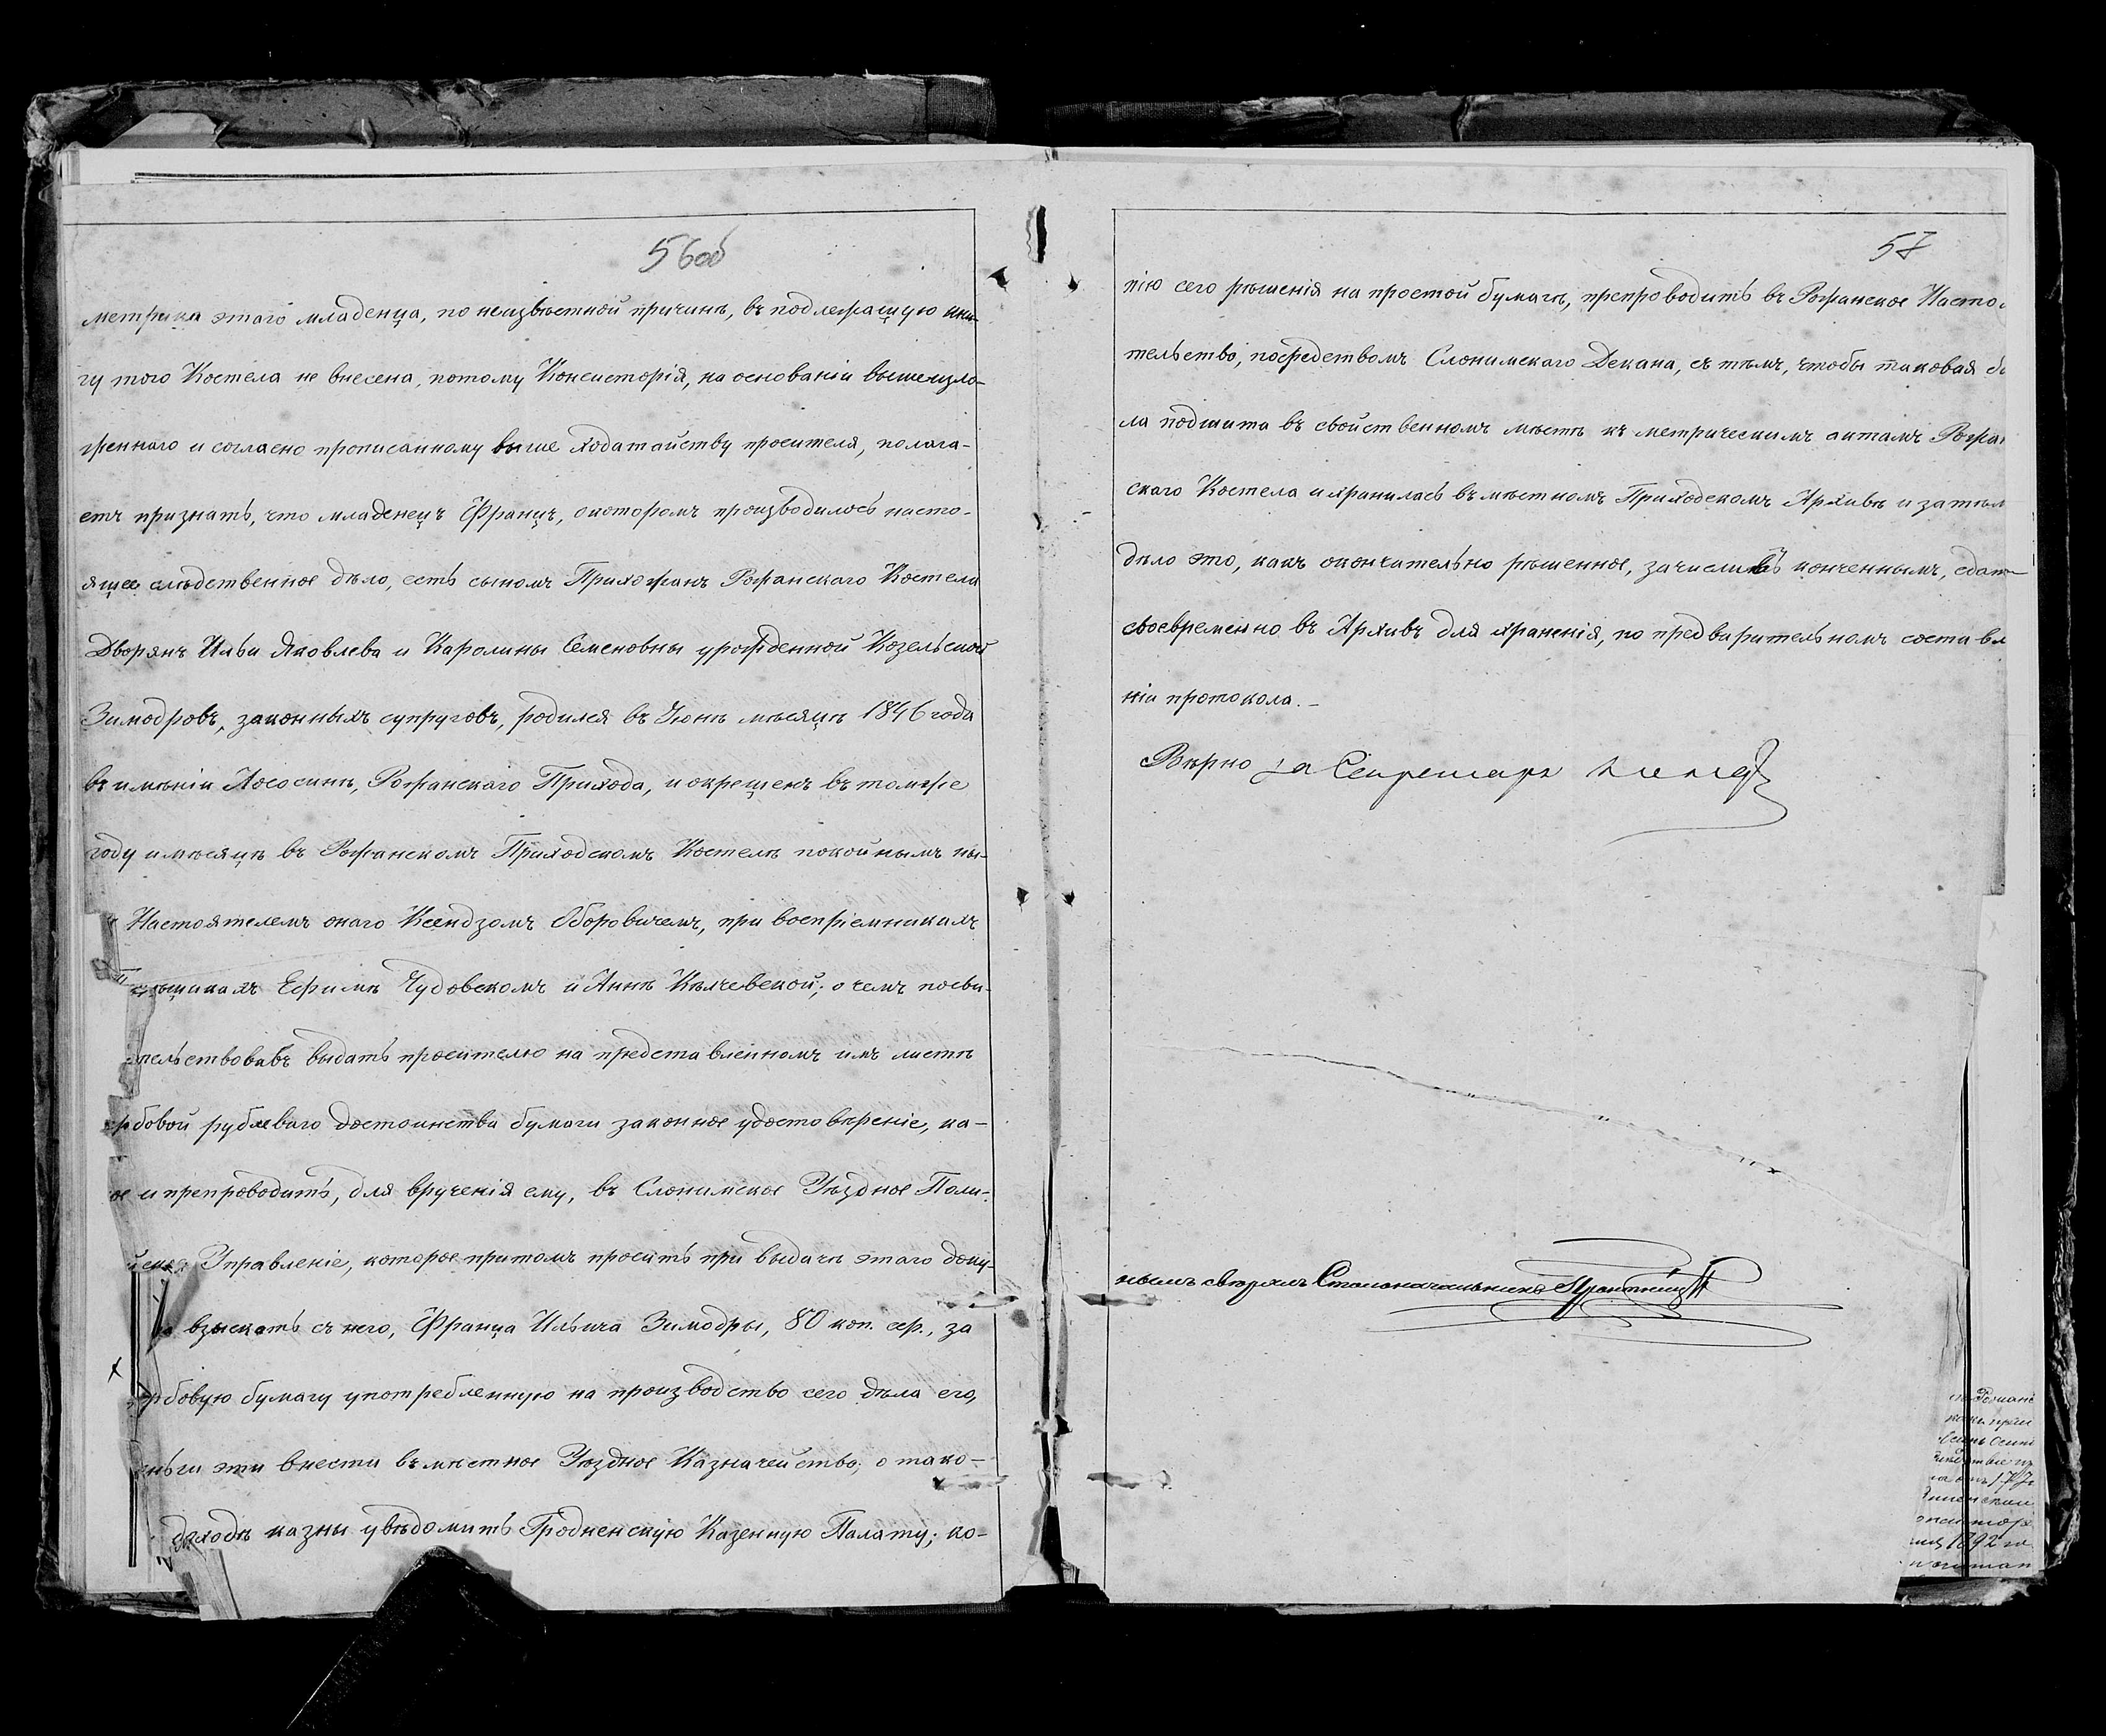 56об
метрика этаго младенца, по неизвѣстной причинѣ, въ подлежащую кни-
гу того Костела не внесена, потому Консисторія, на основаніи вышеизло-
женнаго и согласно прописанному выше ходатайству просителя, полага-
етъ признать, что младенецъ Францъ, о которомъ производилось насто-
ящее слѣдственное дѣло, есть сыномъ Прихожанъ Рожанскаго Костела
Дворянъ Ильи Яковлева и Каролины Семеновны урожденной Козельской
Зимодровъ, законныхъ супруговъ, родился въ Іюнѣ мѣсяцѣ 1846 года
въ имѣніи Лососинѣ, Рожанскаго Прихода, и окрещенъ въ томъ же
году и мѣсяцѣ въ Рожанскомъ Приходскомъ Костелѣ покойнымъ ны-
Настоятелемъ онаго Ксендзомъ Оборовичемъ, при воспріемникахъ
Ефимѣ Чудовскомъ и Аннѣ Кѣлчевской; о чемъ посви-
тельствовавъ выдать просителю на представленномъ имъ листѣ
рбовой рублеваго достоинства бумаги законное удостовѣреніе, ка-
ое и препроводить, для врученія ему, въ Слонимское Уѣздное Поли-
йское Управленіе, которое притомъ просить при выдачѣ этаго доку-
взыскать съ него, Франца Ильича Зимодры, 80 коп. сер., за
рбовую бумагу употребленную на производство сего дѣла его,
ньги эти внести въ мѣстное Уѣздное Казначейство; о тако-
доходѣ казны увѣдомить Гродненскую Казенную Палату; ко-
57
пію сего рѣшенія на простой бумагѣ, препроводить въ Рожанское Насто
тельство, посредствомъ Слонимскаго Декана, съ тѣмъ, чтобы таковая бы
ла подшита въ свойственномъ мѣстѣ къ метрическимъ актамъ Рожан
скаго Костела и хранилась въ мѣстномъ Приходскомъ Архивѣ и затѣм
дѣло это, какъ окончательно рѣшенное, зачисливъ конченнымъ, сдать
своевременно въ Архивъ для храненія, по предварительномъ составл
ніи протокола.
Вѣрно за Секретаря
нымъ свѣрялъ Столоначальникъ